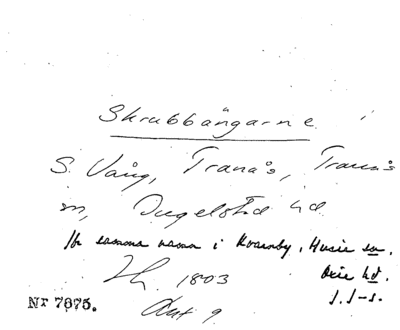 Skrubbängarne
S. Vång, Tranås, Tranås
sn, Ingelstad hd.
Jfr samma namn i Kvarnby, Husie sn.
Oxie hd.
1803
J.J-s.
Akt 9
Nr 7875.